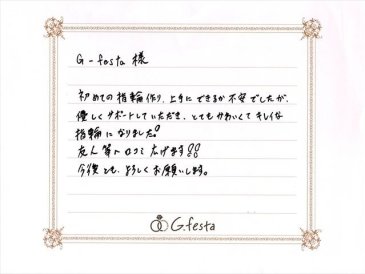 G-festa 様
初めての指輪作り、上手にできるか不安でしたが、
優しくサポートしていただき、とてもかわいくてキレイな
指輪になりました!
友人等へ口コミ広げます!!
今後とも、よろしくお願いします。
G.festa